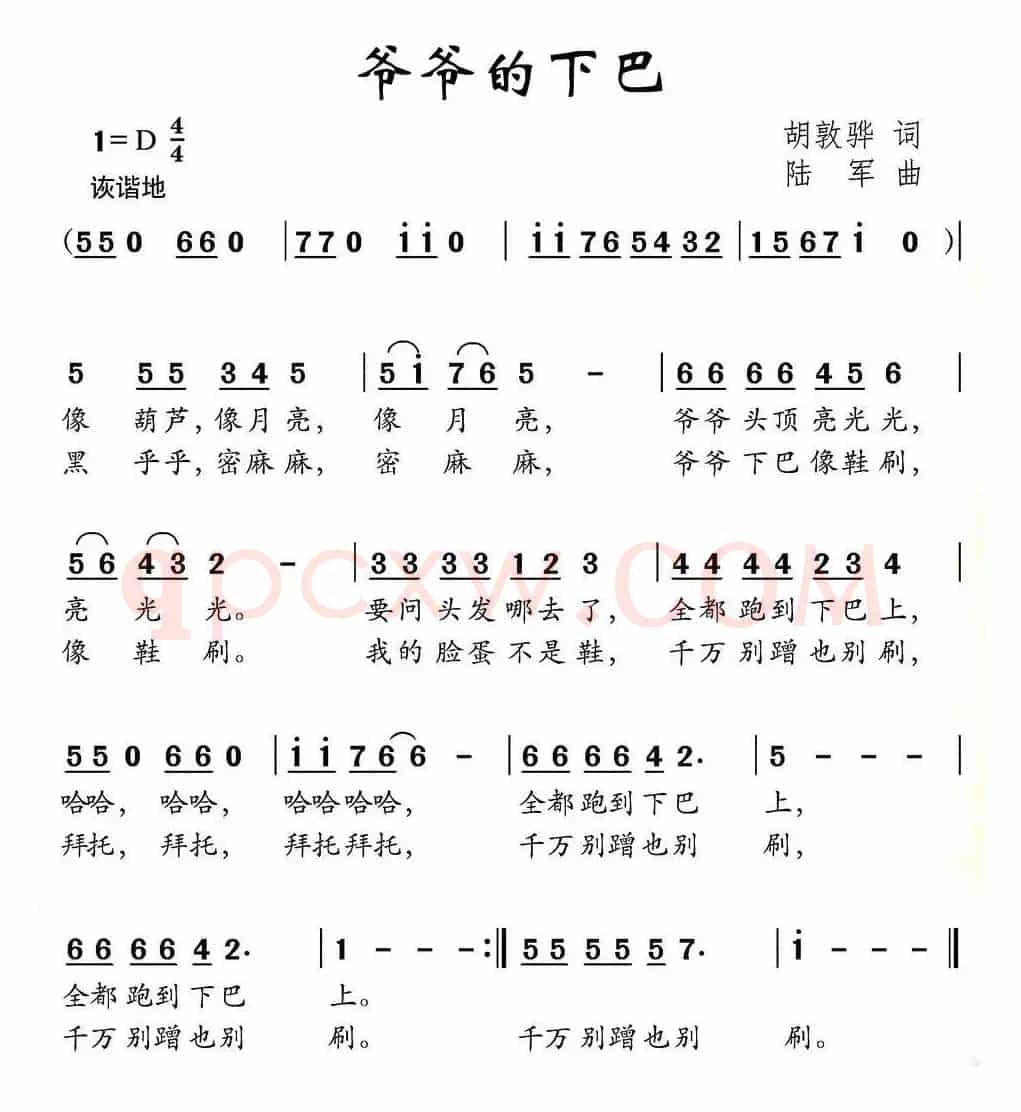 爷爷的下巴
1=D 4/4
胡敦骅 词
诙谐地
陆 军 曲
(550 660 |770 i̇i̇0 | i̇i̇765432 |1567i̇ 0 )|
5 55 345 |5i̇ 76 5 - |66 66 45 6 |
像 葫芦,像月亮, 像 月 亮, 爷爷头顶亮光光,
黑 乎乎,密麻麻, 密 麻 麻, 爷爷下巴像鞋刷,
56 43 2 - |33 33 12 3 |44 44 23 4 |
亮 光 光。 要问头发哪去了, 全都跑到下巴上,
像 鞋 刷。 我的脸蛋不是鞋, 千万别蹭也别刷,
qpcxw.COM
550 660 |i̇i̇ 766 - |66 66 4 2. |5 - - - |
哈哈, 哈哈, 哈哈哈哈, 全都跑到下巴 上,
拜托, 拜托, 拜托拜托, 千万别蹭也别 刷,
66 66 4 2. |1 - - - :‖55 55 5 7. |i̇ - - - ‖
全都跑到下巴 上。
千万别蹭也别 刷。 千万别蹭也别 刷。